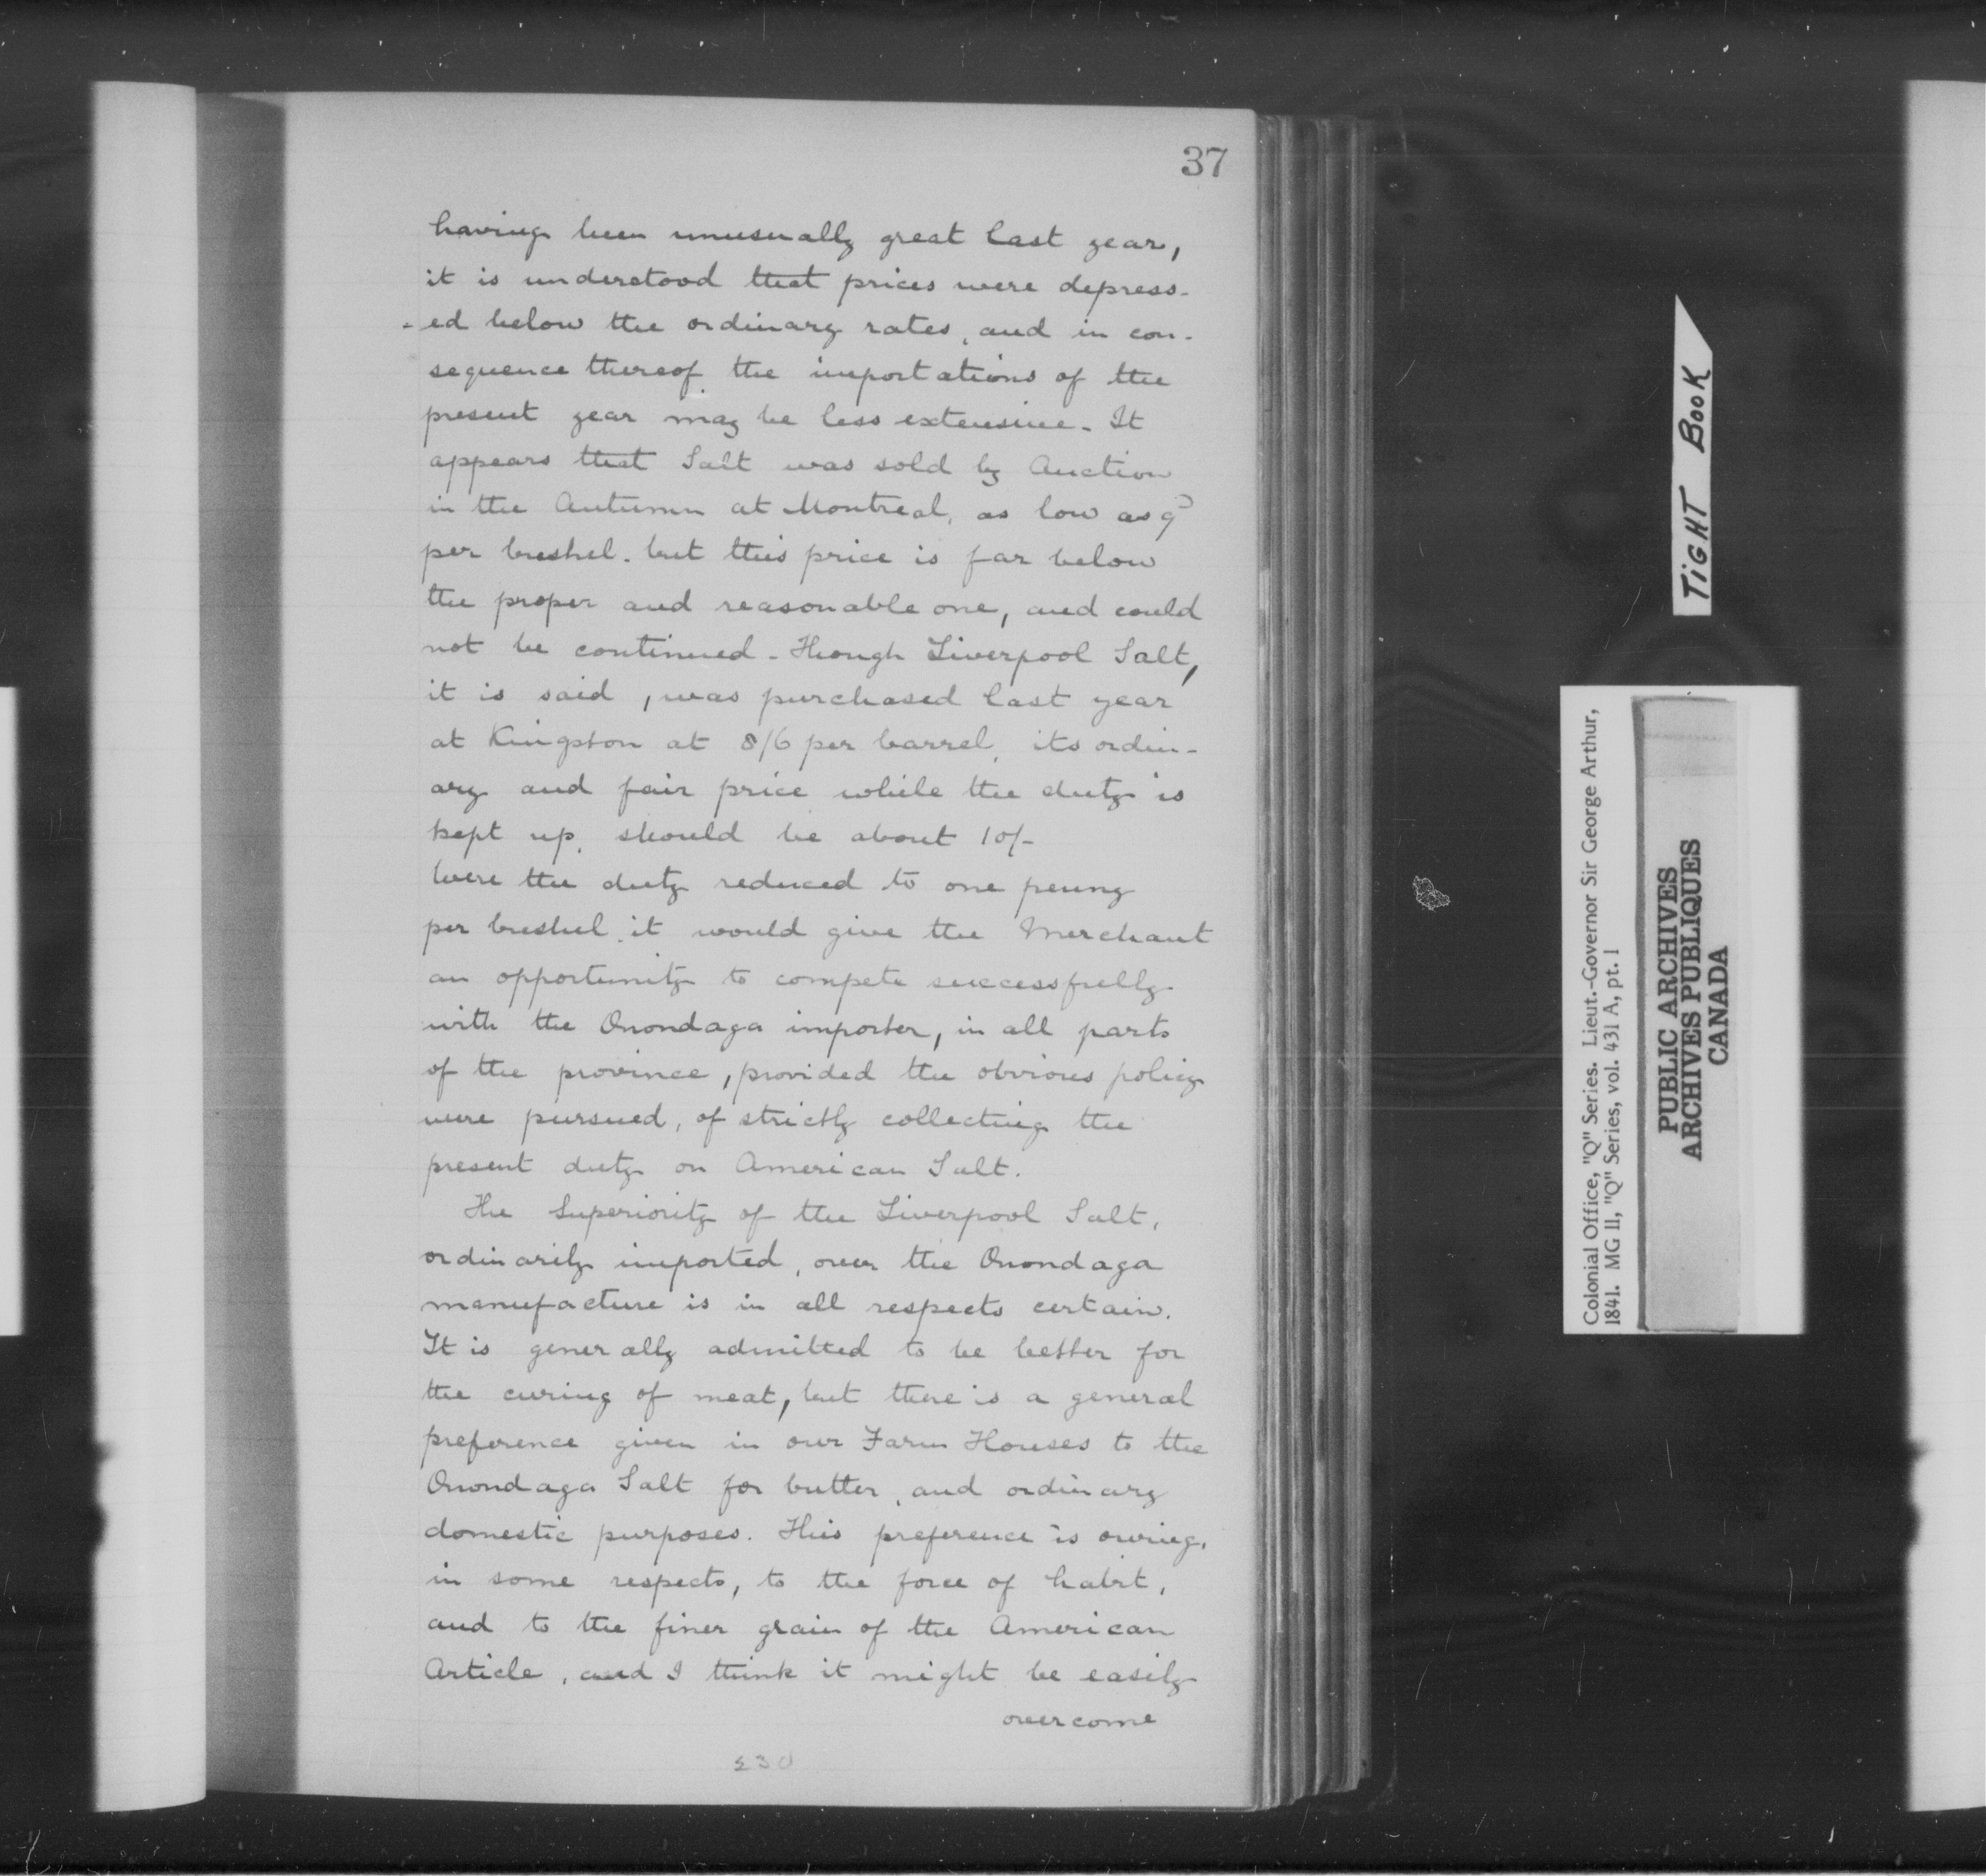 37
having been unusually great last year,
it is understood that prices were depress-
-ed below the ordinary rates, and in con-
sequence thereof the importations of the
present year may be less extensive. It
appears that Salt was sold by Auction
in the Autumn at Montreal, as low as 9ᵈ
per bushel. but this price is far below
the proper and reasonable one, and could
not be continued. Though Liverpool Salt,
it is said, was purchased last year
at Kingston at 8/6 per barrel, its ordin-
ary and fair price while the duty is
kept up, should be about 10/-
Were the duty reduced to one penny
per bushel, it would give the Merchant
an opportunity to compete successfully
with the Onondaga importer, in all parts
of the province, provided the obvious policy
were pursued, of strictly collecting the
present duty on American Salt.
The Superiority of the Liverpool Salt,
ordinarily imported, over the Onondaga
manufacture is in all respects certain.
It is generally admitted to be better for
the curing of meat, but there is a general
preference given in our Farm Houses to the
Onondaga Salt for butter, and ordinary
domestic purposes. This preference is owing,
in some respects, to the force of habit,
and to the finer grain of the American
Article, and I think it might be easily
overcome
230
TIGHT BOOK
Colonial Office, "Q" Series. Lieut.-Governor Sir George Arthur,
1841. MG 11, "Q" Series, vol. 431 A, pt. 1
PUBLIC ARCHIVES
ARCHIVES PUBLIQUES
CANADA